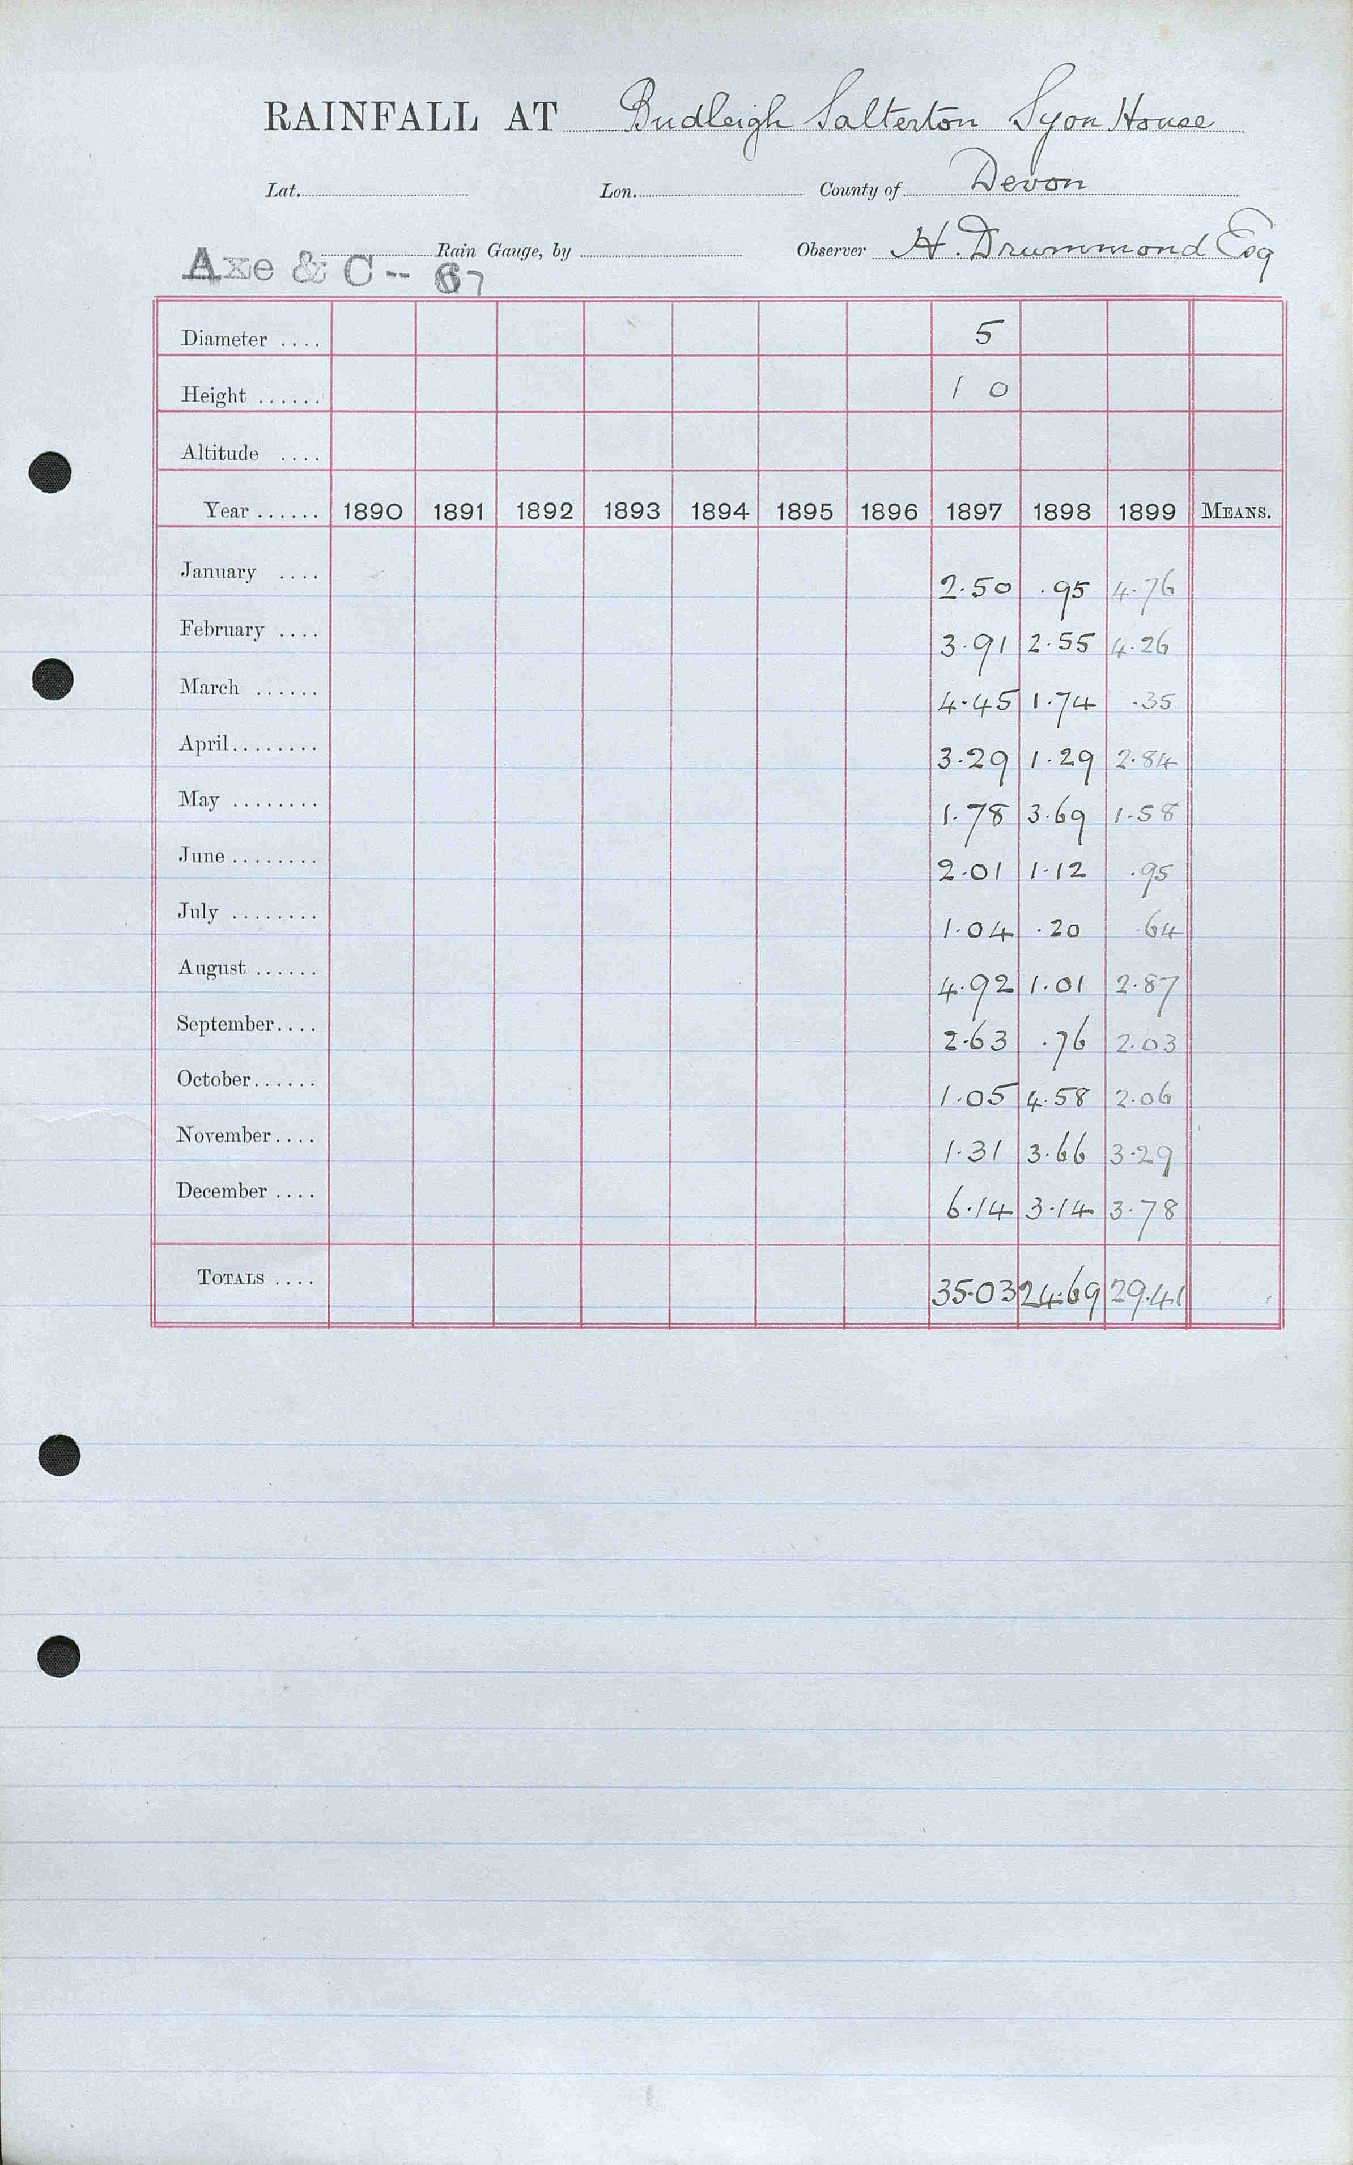 RAINFALL AT Budleigh Salterton Syon House
Lat. Lon. County of Devon
Axe & C -- 67 Rain Gauge, by Observer H. Drummond Esq
Diameter .... 5
Height ...... 1 0
Altitude ....
Year ...... 1890 1891 1892 1893 1894 1895 1896 1897 1898 1899 MEANS.
January .... 2.50 .95 4.76
February .... 3.91 2.55 4.26
March ...... 4.45 1.74 .35
April........ 3.29 1.29 2.84
May ........ 1.78 3.69 1.58
June ........ 2.01 1.12 .95
July ........ 1.04 .20 .64
August ...... 4.92 1.01 2.87
September.... 2.63 .76 2.03
October...... 1.05 4.58 2.06
November.... 1.31 3.66 3.29
December .... 6.14 3.14 3.78
TOTALS .... 35.03 24.69 29.41